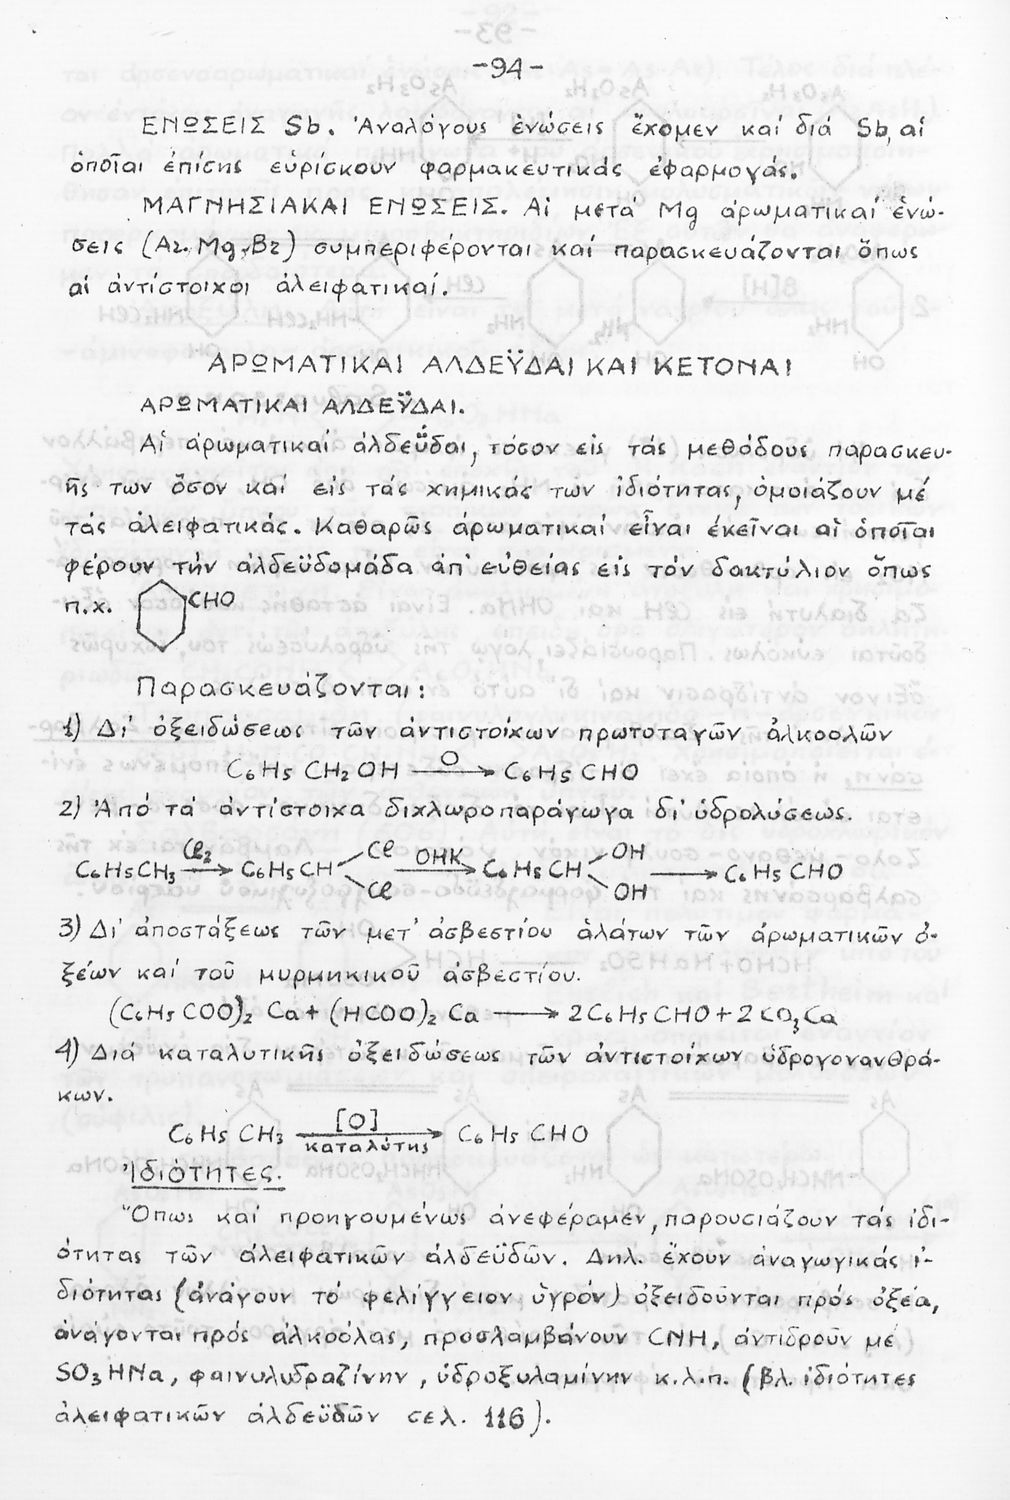 -94-
ΕΝΩΣΕΙΣ Sb. Ἀναλόγους ἑνώσεις ἔχομεν καί διά Sb, αἱ
ὁποῖαι ἐπίσης εὑρίσκουν φαρμακευτικάς ἐφαρμογάς.
ΜΑΓΝΗΣΙΑΚΑΙ ΕΝΩΣΕΙΣ. Αἱ μετά Mg ἀρωματικαί ἑνώ-
σεις (Ar. Mg. Br) συμπεριφέρονται καί παρασκευάζονται ὅπως
αἱ ἀντίστοιχοι ἀλειφατικαί.
ΑΡΩΜΑΤΙΚΑΙ ΑΛΔΕΫΔΑΙ ΚΑΙ ΚΕΤΟΝΑΙ
ΑΡΩΜΑΤΙΚΑΙ ΑΛΔΕΫΔΑΙ.
Αἱ ἀρωματικαί ἀλδεΰδαι, τόσον εἰς τάς μεθόδους παρασκευ-
ῆς των ὅσον καί εἰς τάς χημικάς των ἰδιότητας, ὁμοιάζουν μέ
τάς ἀλειφατικάς. Καθαρῶς ἀρωματικαί εἶναι ἐκεῖναι αἱ ὁποῖαι
φέρουν τήν ἀλδεϋδομάδα ἀπ' εὐθείας εἰς τόν δακτύλιον ὅπως
π.χ. CHO
Παρασκευάζονται:
1) Δι' ὀξειδώσεως τῶν ἀντιστοίχων πρωτοταγῶν ἀλκοολῶν
C₆H₅ CH₂OH —O→ C₆H₅ CHO
2) Ἀπό τά ἀντίστοιχα διχλωροπαράγωγα δι' ὑδρολύσεως.
C₆H₅CH₃ —Cl₂→ C₆H₅CH Cl Cl —OHK→ C₆H₅CH OH OH → C₆H₅ CHO
3) Δι' ἀποστάξεως τῶν μετ' ἀσβεστίου ἁλάτων τῶν ἀρωματικῶν ὀ-
ξέων καί τοῦ μυρμηκικοῦ ἀσβεστίου.
(C₆H₅COO)₂ Ca + (HCOO)₂ Ca → 2C₆H₅CHO + 2CO₃Ca
4) Διά καταλυτικῆς ὀξειδώσεως τῶν ἀντιστοίχων ὑδρογονανθρά-
κων.
C₆H₅ CH₃ —[O] καταλύτης→ C₆H₅ CHO
Ἰδιότητες.
Ὅπως καί προηγουμένως ἀνεφέραμεν, παρουσιάζουν τάς ἰδι-
ότητας τῶν ἀλειφατικῶν ἀλδεϋδῶν. Δηλ. ἔχουν ἀναγωγικάς ἰ-
διότητας (ἀνάγουν τό φελίγγειον ὑγρόν) ὀξειδοῦνται πρός ὀξέα,
ἀνάγονται πρός ἀλκοόλας, προσλαμβάνουν CNH, ἀντιδροῦν μέ
SO₃HNa, φαινυλυδραζίνην, ὑδροξυλαμίνην κ.λ.π. (βλ. ἰδιότητες
ἀλειφατικῶν ἀλδεϋδῶν σελ. 116).